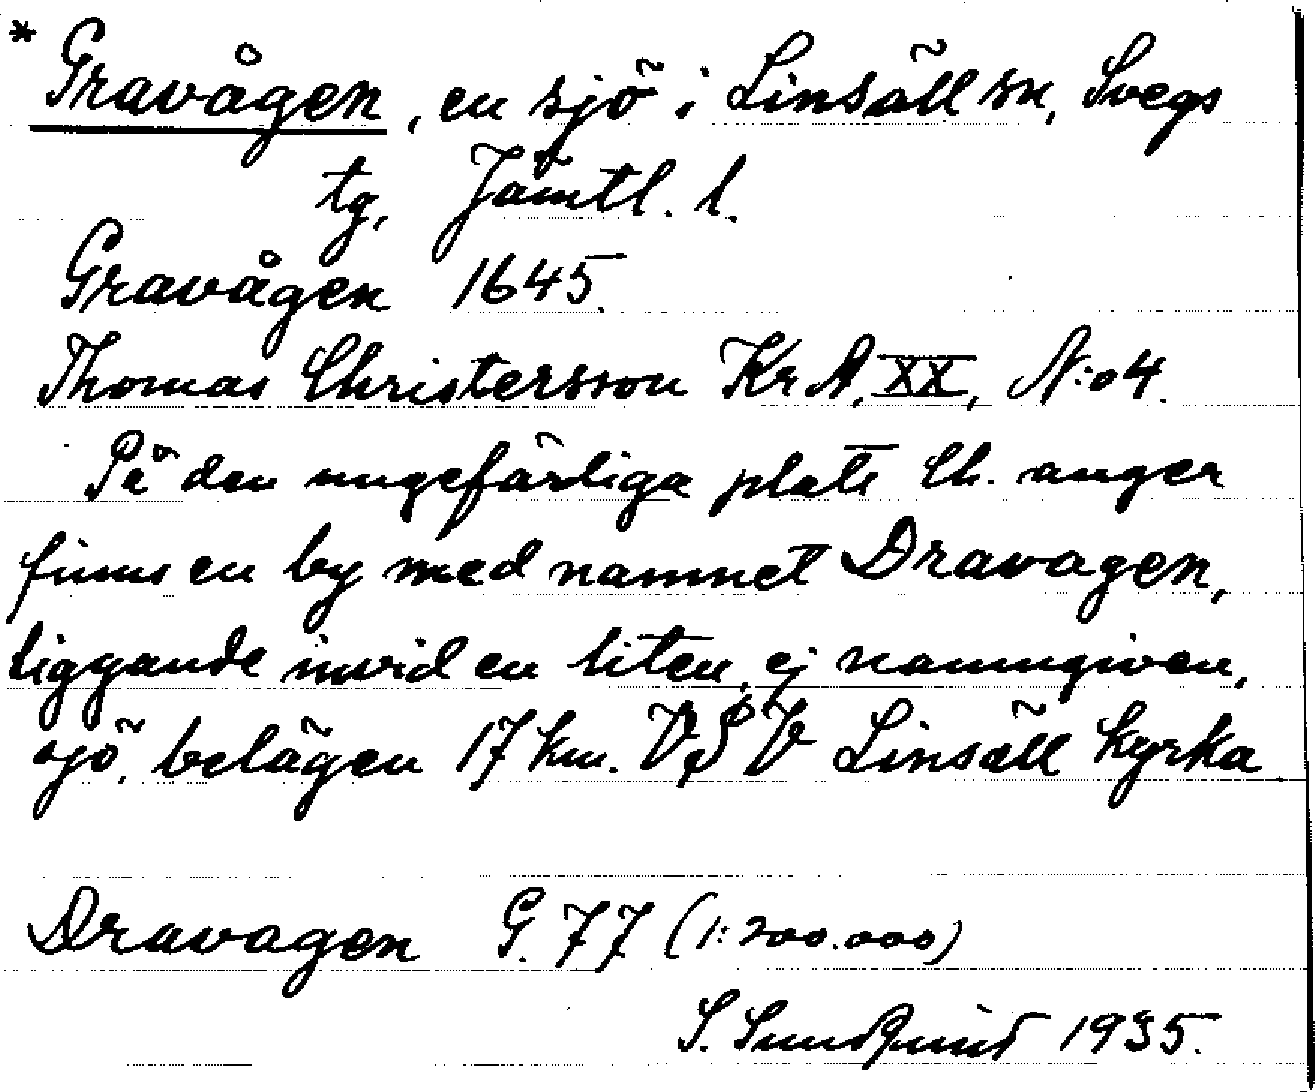 * Gravågen, en sjö i Linsäll sn, Svegs
tg, Jämtl. l.
Gravågen 1645.
Thomas Christersson Kr A, XX, N:o 4.
På den ungefärliga plats Ch. anger
finns en by med namnet Dravagen,
liggande invid en liten, ej namngiven,
sjö, belägen 17 km. VSV Linsäll kyrka.
Dravagen G. 77 (1:200.000)
S. Sundqvist 1935.